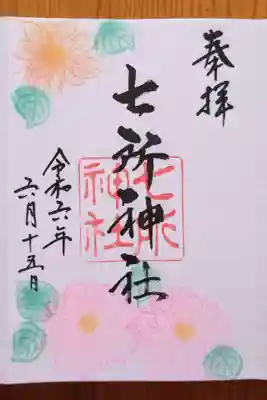 奉拝
七所神社
七所神社
令和六年
六月十五日